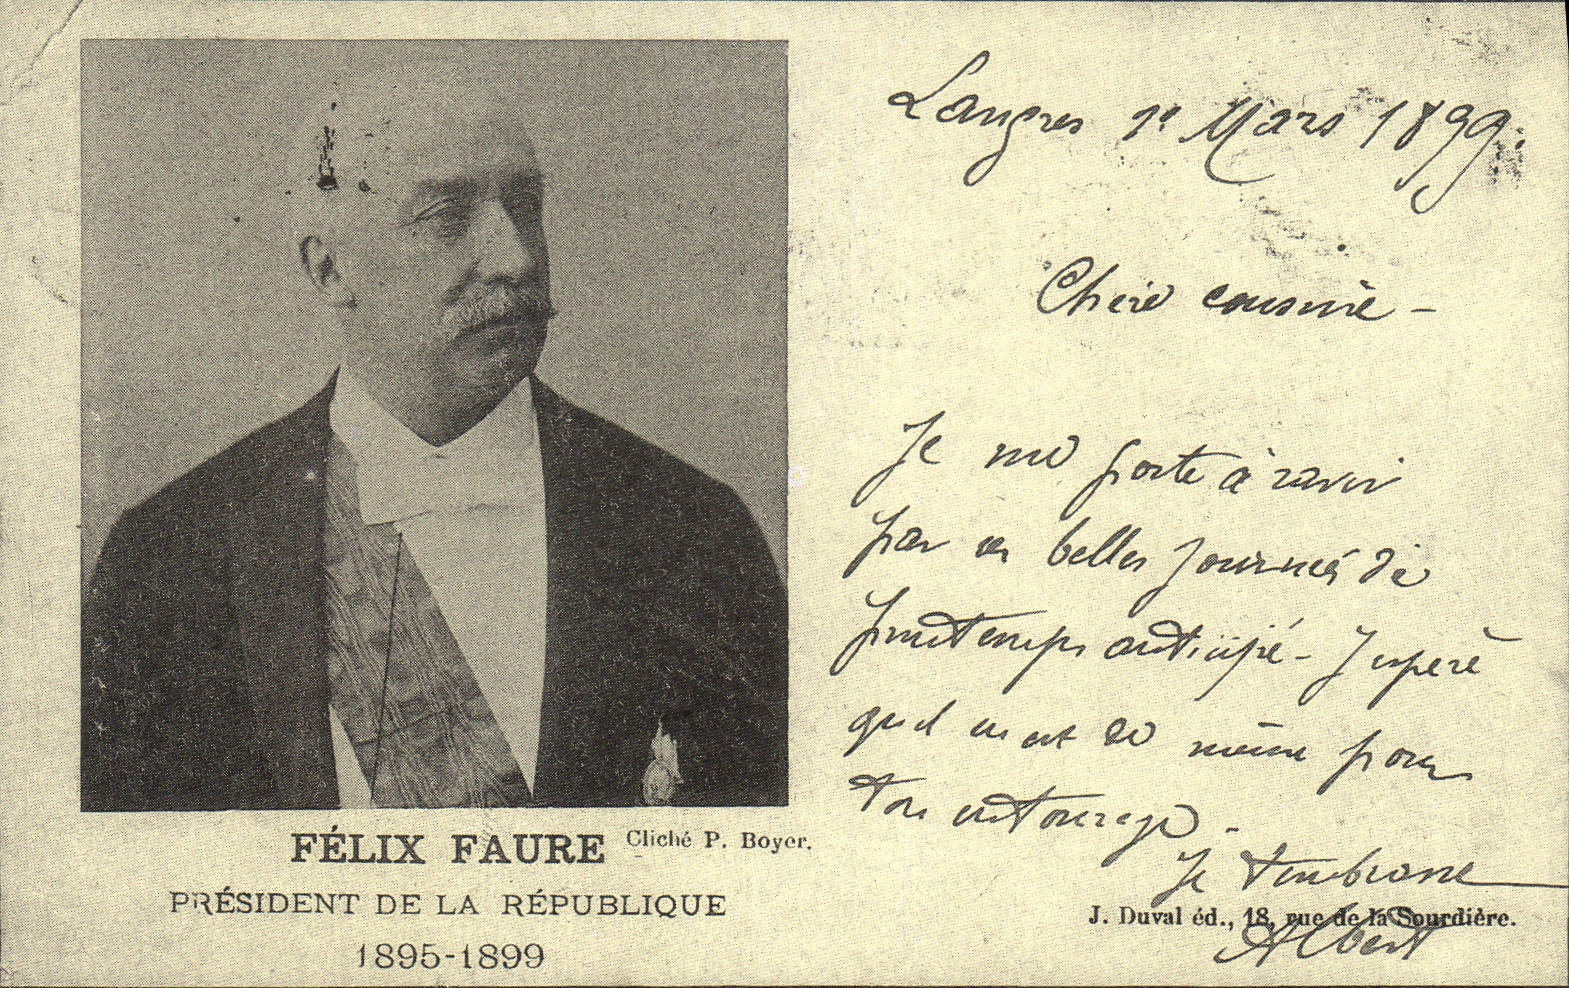 FÉLIX FAURE
Cliché P. Boyer.
PRÉSIDENT DE LA RÉPUBLIQUE
1895-1899
Langres 1er Mars 1899.
Chère cousine -
Je me porte à ravir
par ces belles journées de
printemps anticipé - J'espère
qu'il en est de même pour
ton entourage.
Je t'embrasse
J. Duval éd., 18, rue de la Sourdière.
Albert